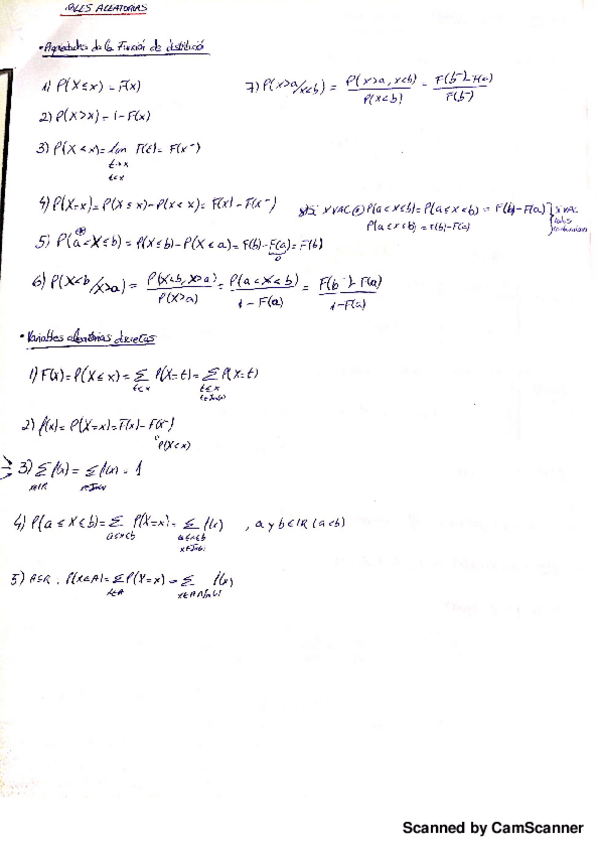 ALEATORIAS
• Propiedades de la Función de distribució
1) P(X≤x) = F(x)
7) P(X>a/X<b) = P(X>a, X<b) / P(X<b) = F(b⁻)-F(a) / F(b⁻)
2) P(X>x) = 1-F(x)
3) P(X<x) = lim F(t) = F(x⁻)
t→x
t<x
4) P(X=x) = P(X≤x) - P(X<x) = F(x) - F(x⁻)
Si X VAC P(a<X<b) = P(a≤X<b) = F(b)-F(a)
P(a≤X≤b) = F(b)-F(a)
5) P(a<X≤b) = P(X≤b) - P(X≤a) = F(b) - F(a) = F(b)
0
6) P(X<b/X>a) = P(X<b, X>a) / P(X>a) = P(a<X<b) / 1-F(a) = F(b⁻)-F(a) / 1-F(a)
• Variables aleatorias discretas
1) F(x) = P(X≤x) = Σ P(X=t) = Σ P(X=t)
t≤x t≤x
2) f(x) = P(X=x) = F(x) - F(x⁻)
P(X<x)
3) Σ f(x) = Σ f(x) = 1
x∈IR
4) P(a≤X≤b) = Σ P(X=x) = Σ f(x) , a y b∈IR (a<b)
a≤x≤b a≤x≤b
5) P(X∈A) = Σ P(X=x) = Σ f(x)
x∈A
Scanned by CamScanner